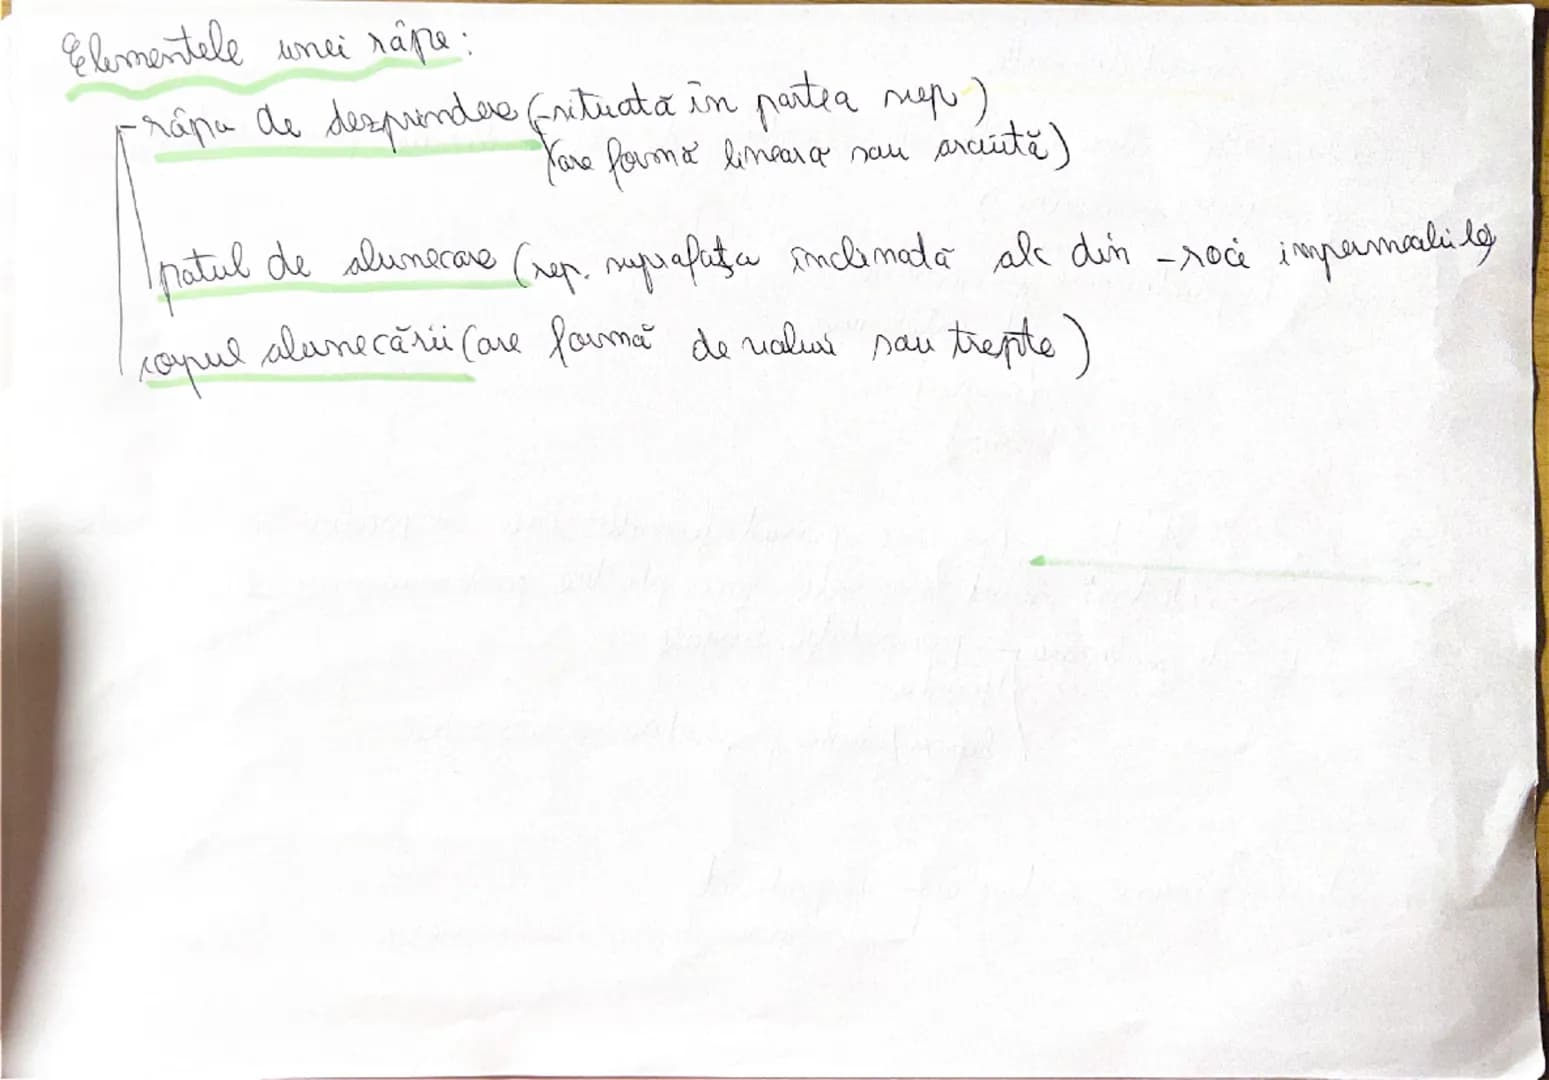 Elementele unei râpe:
- râpa de desprindere (situată în partea sup.)
(are formă lineară sau arcuită)
patul de alunecare (rep. suprafața înclinată alc din - roci impermeabile)
corpul alunecării (are formă de valuri sau trepte)